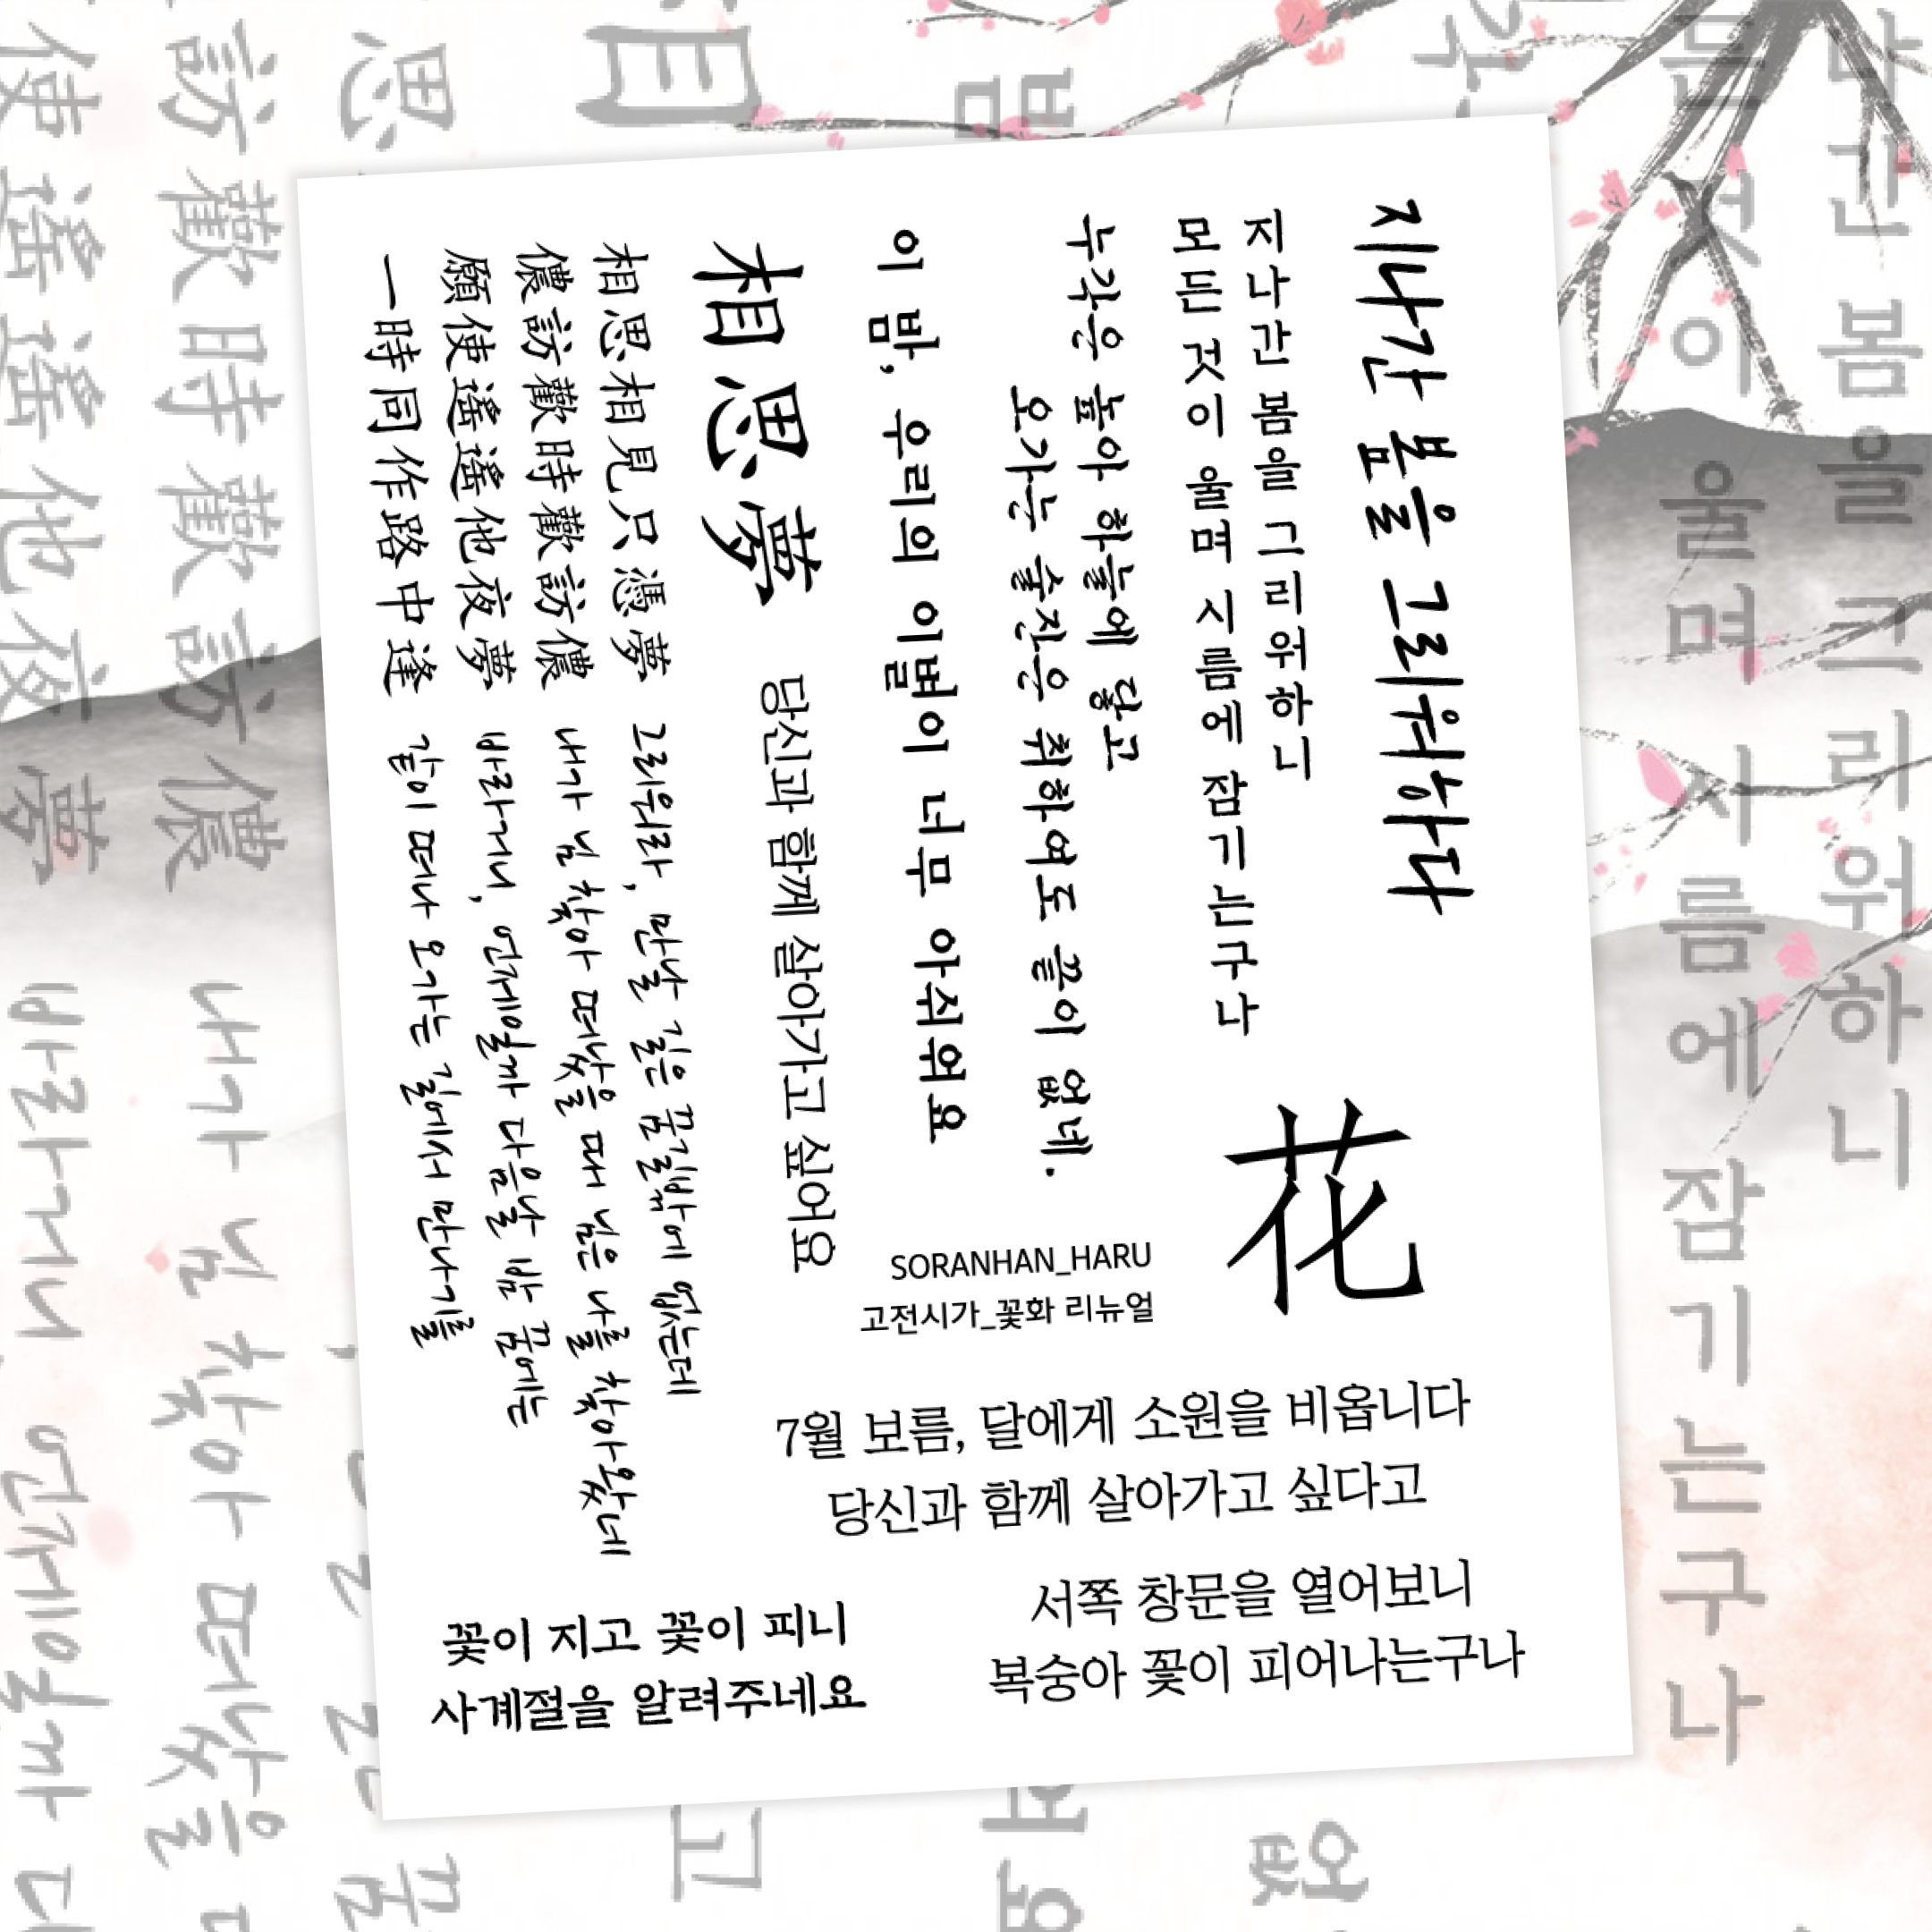 지나간 봄을 그리워하다
지나간 봄을 그리워하니
모든것이 울며 시름에 잠기는구나
누각은 높아 하늘에 닿고
오가는 술잔은 취하여도 끝이 없네.
이 밤, 우리의 이별이 너무 아쉬워요
相思夢
당신과 함께 살아가고 싶어요
相思相見只憑夢
儂訪歡時歡訪儂
願使遙遙他夜夢
一時同作路中逢
그리워라, 만날 길은 꿈길밖에 없는데
내가 님 찾아 떠났을 때 님은 나를 찾아왔네
바라거니, 언제일까 다음날 밤 꿈에는
같이 떠나 오가는 길에서 만나기를
花
SORANHAN_HARU
고전시가_꽃화 리뉴얼
7월 보름, 달에게 소원을 비옵니다
당신과 함께 살아가고 싶다고
서쪽 창문을 열어보니
복숭아 꽃이 피어나는구나
꽃이 지고 꽃이 피니
사계절을 알려주네요